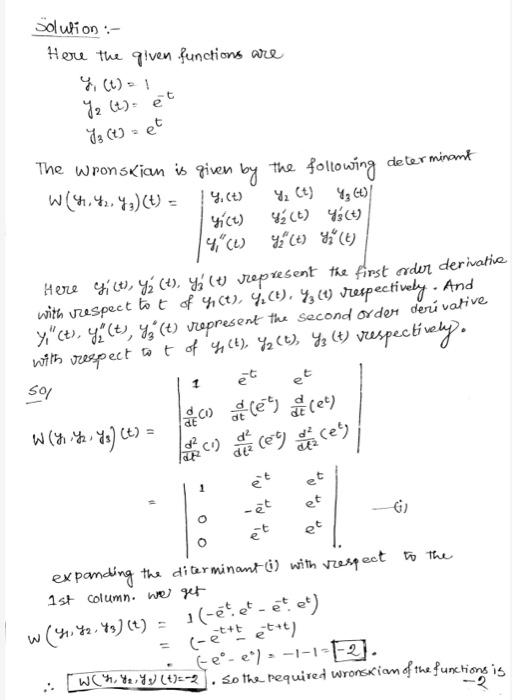 Solution :-
Here the given functions are
y₁ (t) = 1
y₂ (t) = e^-t
y₃ (t) = e^t
The Wronskian is given by the following determinant
W(y₁, y₂, y₃)(t) = | y₁(t) y₂(t) y₃(t) |
| y₁'(t) y₂'(t) y₃'(t) |
| y₁''(t) y₂''(t) y₃''(t) |
Here y₁'(t), y₂'(t), y₃'(t) represent the first order derivative
with respect to t of y₁(t), y₂(t), y₃(t) respectively. And
y₁''(t), y₂''(t), y₃''(t) represent the second order derivative
with respect to t of y₁(t), y₂(t), y₃(t) respectively.
So,
W(y₁, y₂, y₃)(t) = | 1 e^-t e^t |
| d/dt(1) d/dt(e^-t) d/dt(e^t) |
| d²/dt²(1) d²/dt²(e^-t) d²/dt²(e^t) |
= | 1 e^-t e^t |
| 0 -e^-t e^t | —(i)
| 0 e^-t e^t |.
expanding the diterminant (i) with respect to the
1st column. we get
W(y₁, y₂, y₃)(t) = 1(-e^-t. e^t - e^-t. e^t)
= (-e^-t+t - e^-t+t)
= (-e^0 - e^0) = -1-1 = -2.
∴ W(y₁, y₂, y₃)(t) = -2. So the required wronskian of the functions is
-2